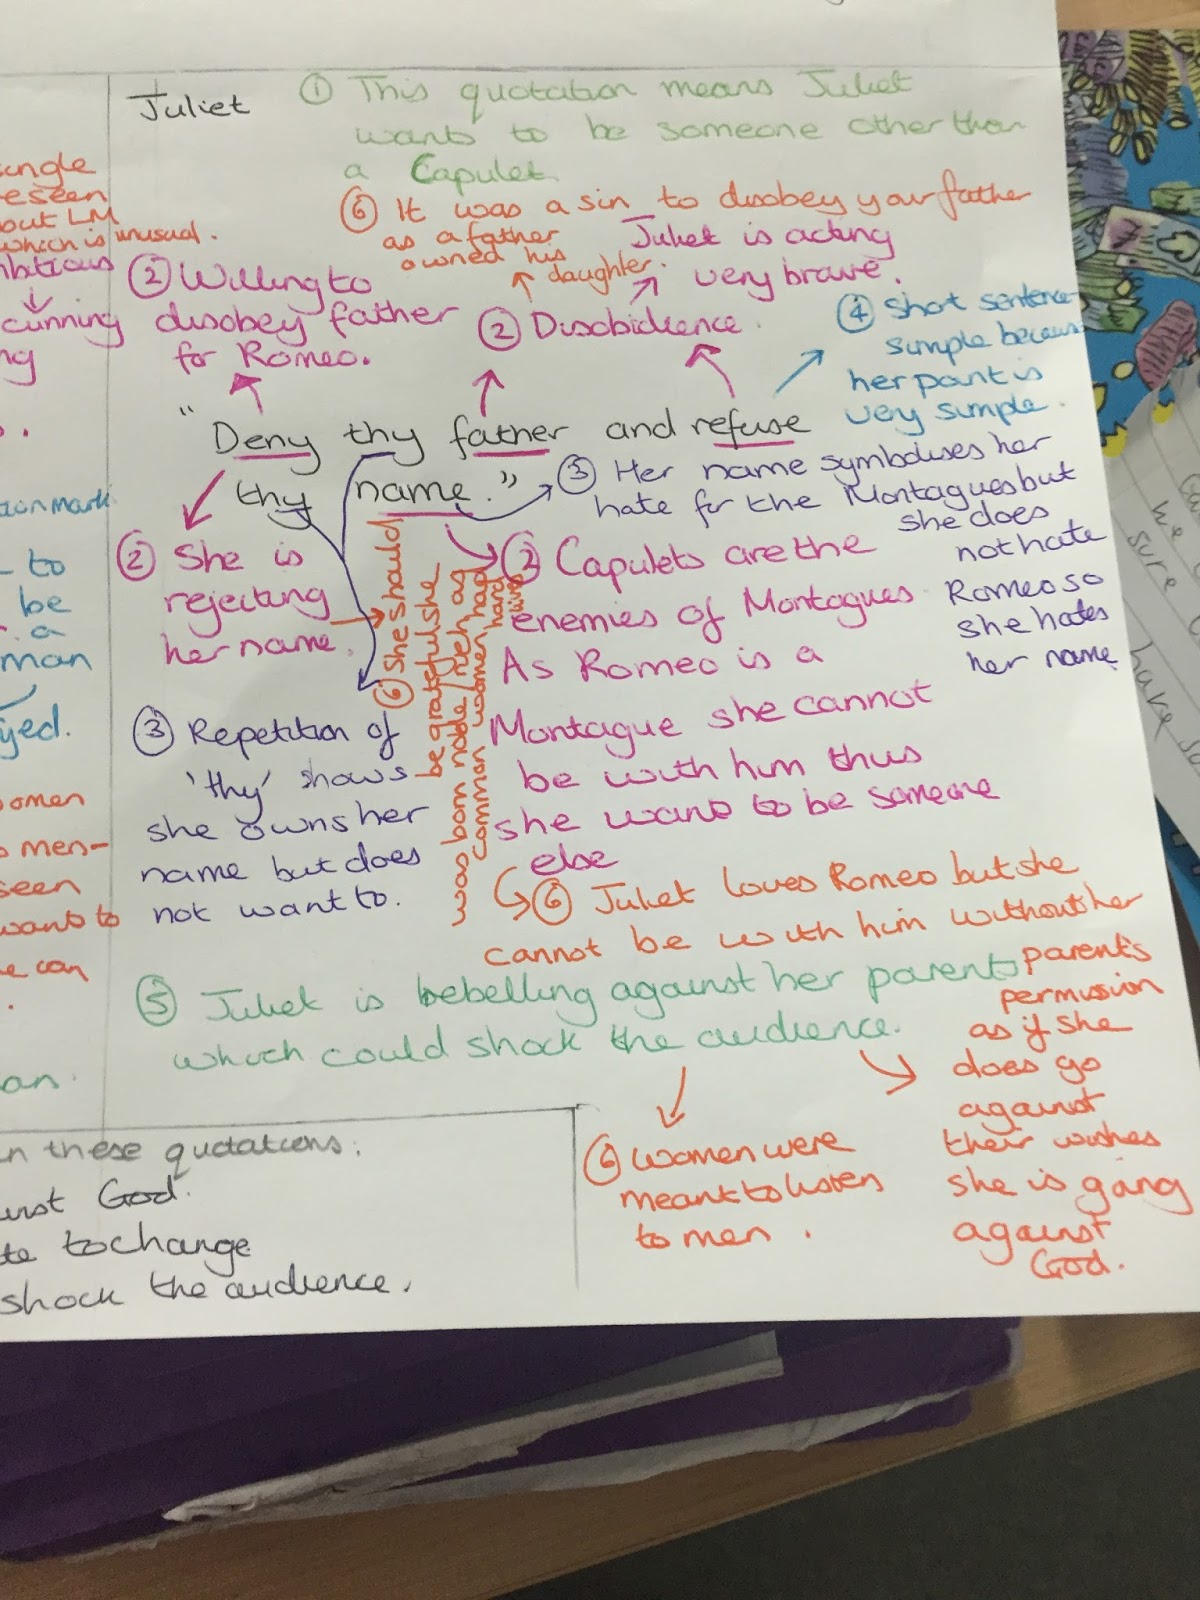 Juliet
① This quotation means Juliet
wants to be someone other than
a Capulet.
⑥ It was a sin to disobey your father
as a father
owned his
daughter.
Juliet is acting
very brave.
② Willing to
disobey father
for Romeo.
② Disobidience.
④ Short sentence
simple because
her point is
very simple.
"Deny thy father and refuse
thy name."
③ Her name symbolises her
hate for the Montagues but
she does
not hate
Romeo so
she hates
her name
② She is
rejecting
her name.
⑥ She should
be grateful she
was born noble/rich as
common women had
hard
lives
② Capulets are the
enemies of Montagues.
As Romeo is a
Montague she cannot
be with him thus
she wants to be someone
else
③ Repetition of
'thy' shows
she owns her
name but does
not want to.
⑥ Juliet loves Romeo but she
cannot be with him without her
parent's
permission
as if she
does go
against
their wishes
she is going
against
God.
⑤ Juliet is bebelling against her parents
which could shock the audience.
⑥ Women were
meant to listen
to men.
out LM
which is unusual.
cunning
to
be
a
man
omen
men-
seen
wants to
can
an.
n these quotations:
God.
to change
shock the audience.
we
sure
have